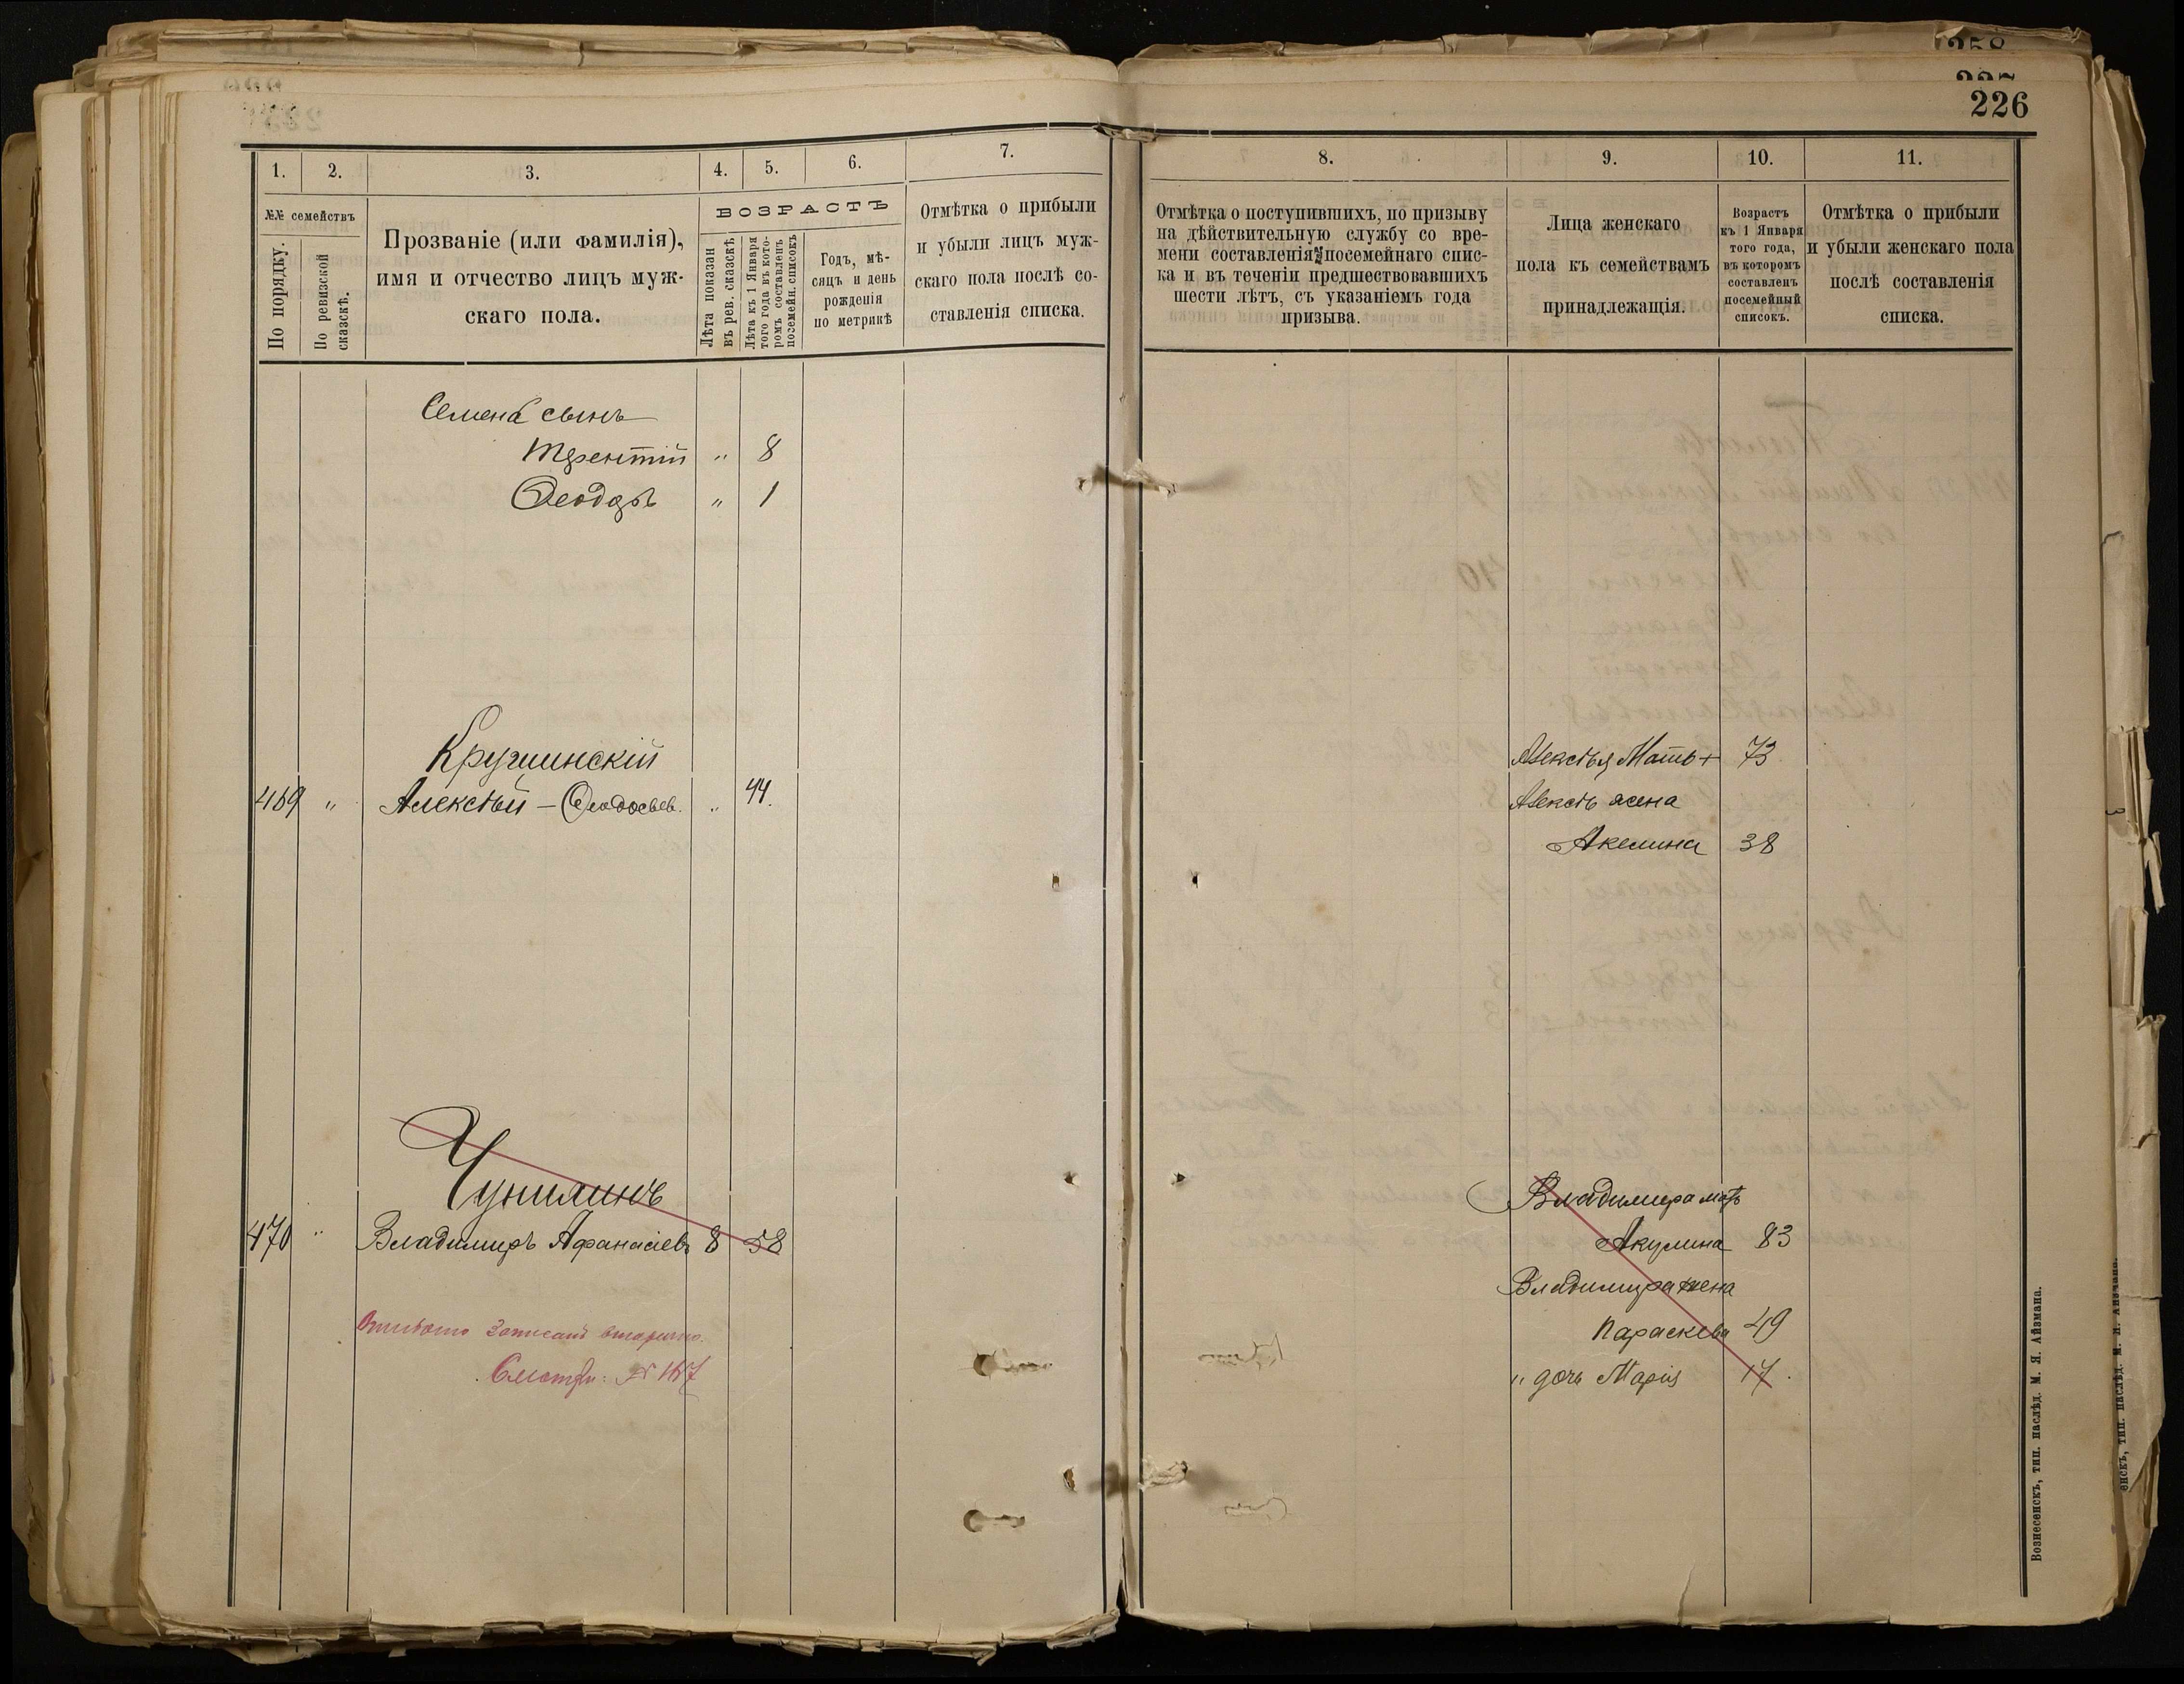 226
1.
2.
3.
4.
5.
6.
7.
№№ семействъ
По порядку.
По ревизской сказскѣ.
Прозваніе (или фамилія),
имя и отчество лицъ муж-
скаго пола.
ВОЗРАСТЪ
Лѣта показан
въ рев. сказскѣ
Лѣта къ 1 Января
того года въ кото-
ромъ составленъ
посемейн. списокъ
Годъ, мѣ-
сяцъ и день
рожденія
по метрикѣ
Отмѣтка о прибыли
и убыли лицъ муж-
скаго пола послѣ со-
ставленія списка.
Семена сынъ
Терентій " 8
Ѳеодоръ " 1
Кружинскій
469 " Алексѣй - Ѳеодосьев. " 44.
Чунилинъ
470 " Владимиръ Афанасіевъ 8 58
записанъ вторично.
Смотри: № 167
8.
9.
10.
11.
Отмѣтка о поступившихъ, по призыву
на дѣйствительную службу со вре-
мени составленія посемейнаго спис-
ка и въ теченіи предшествовавшихъ
шести лѣтъ, съ указаніемъ года
призыва.
Лица женскаго
пола къ семействамъ
принадлежащія.
Возрастъ
къ 1 Января
того года,
въ которомъ
составленъ
посемейный
списокъ.
Отмѣтка о прибыли
и убыли женскаго пола
послѣ составленія
списка.
Алексѣя Мать + 73
Алексѣя жена
Акелина 38
Владимира мать
Акулина 83
Владимира жена
Параскева 49
" дочь Марія 17.
Вознесенскъ, тип. наслѣд. М. Я. Айзмана.